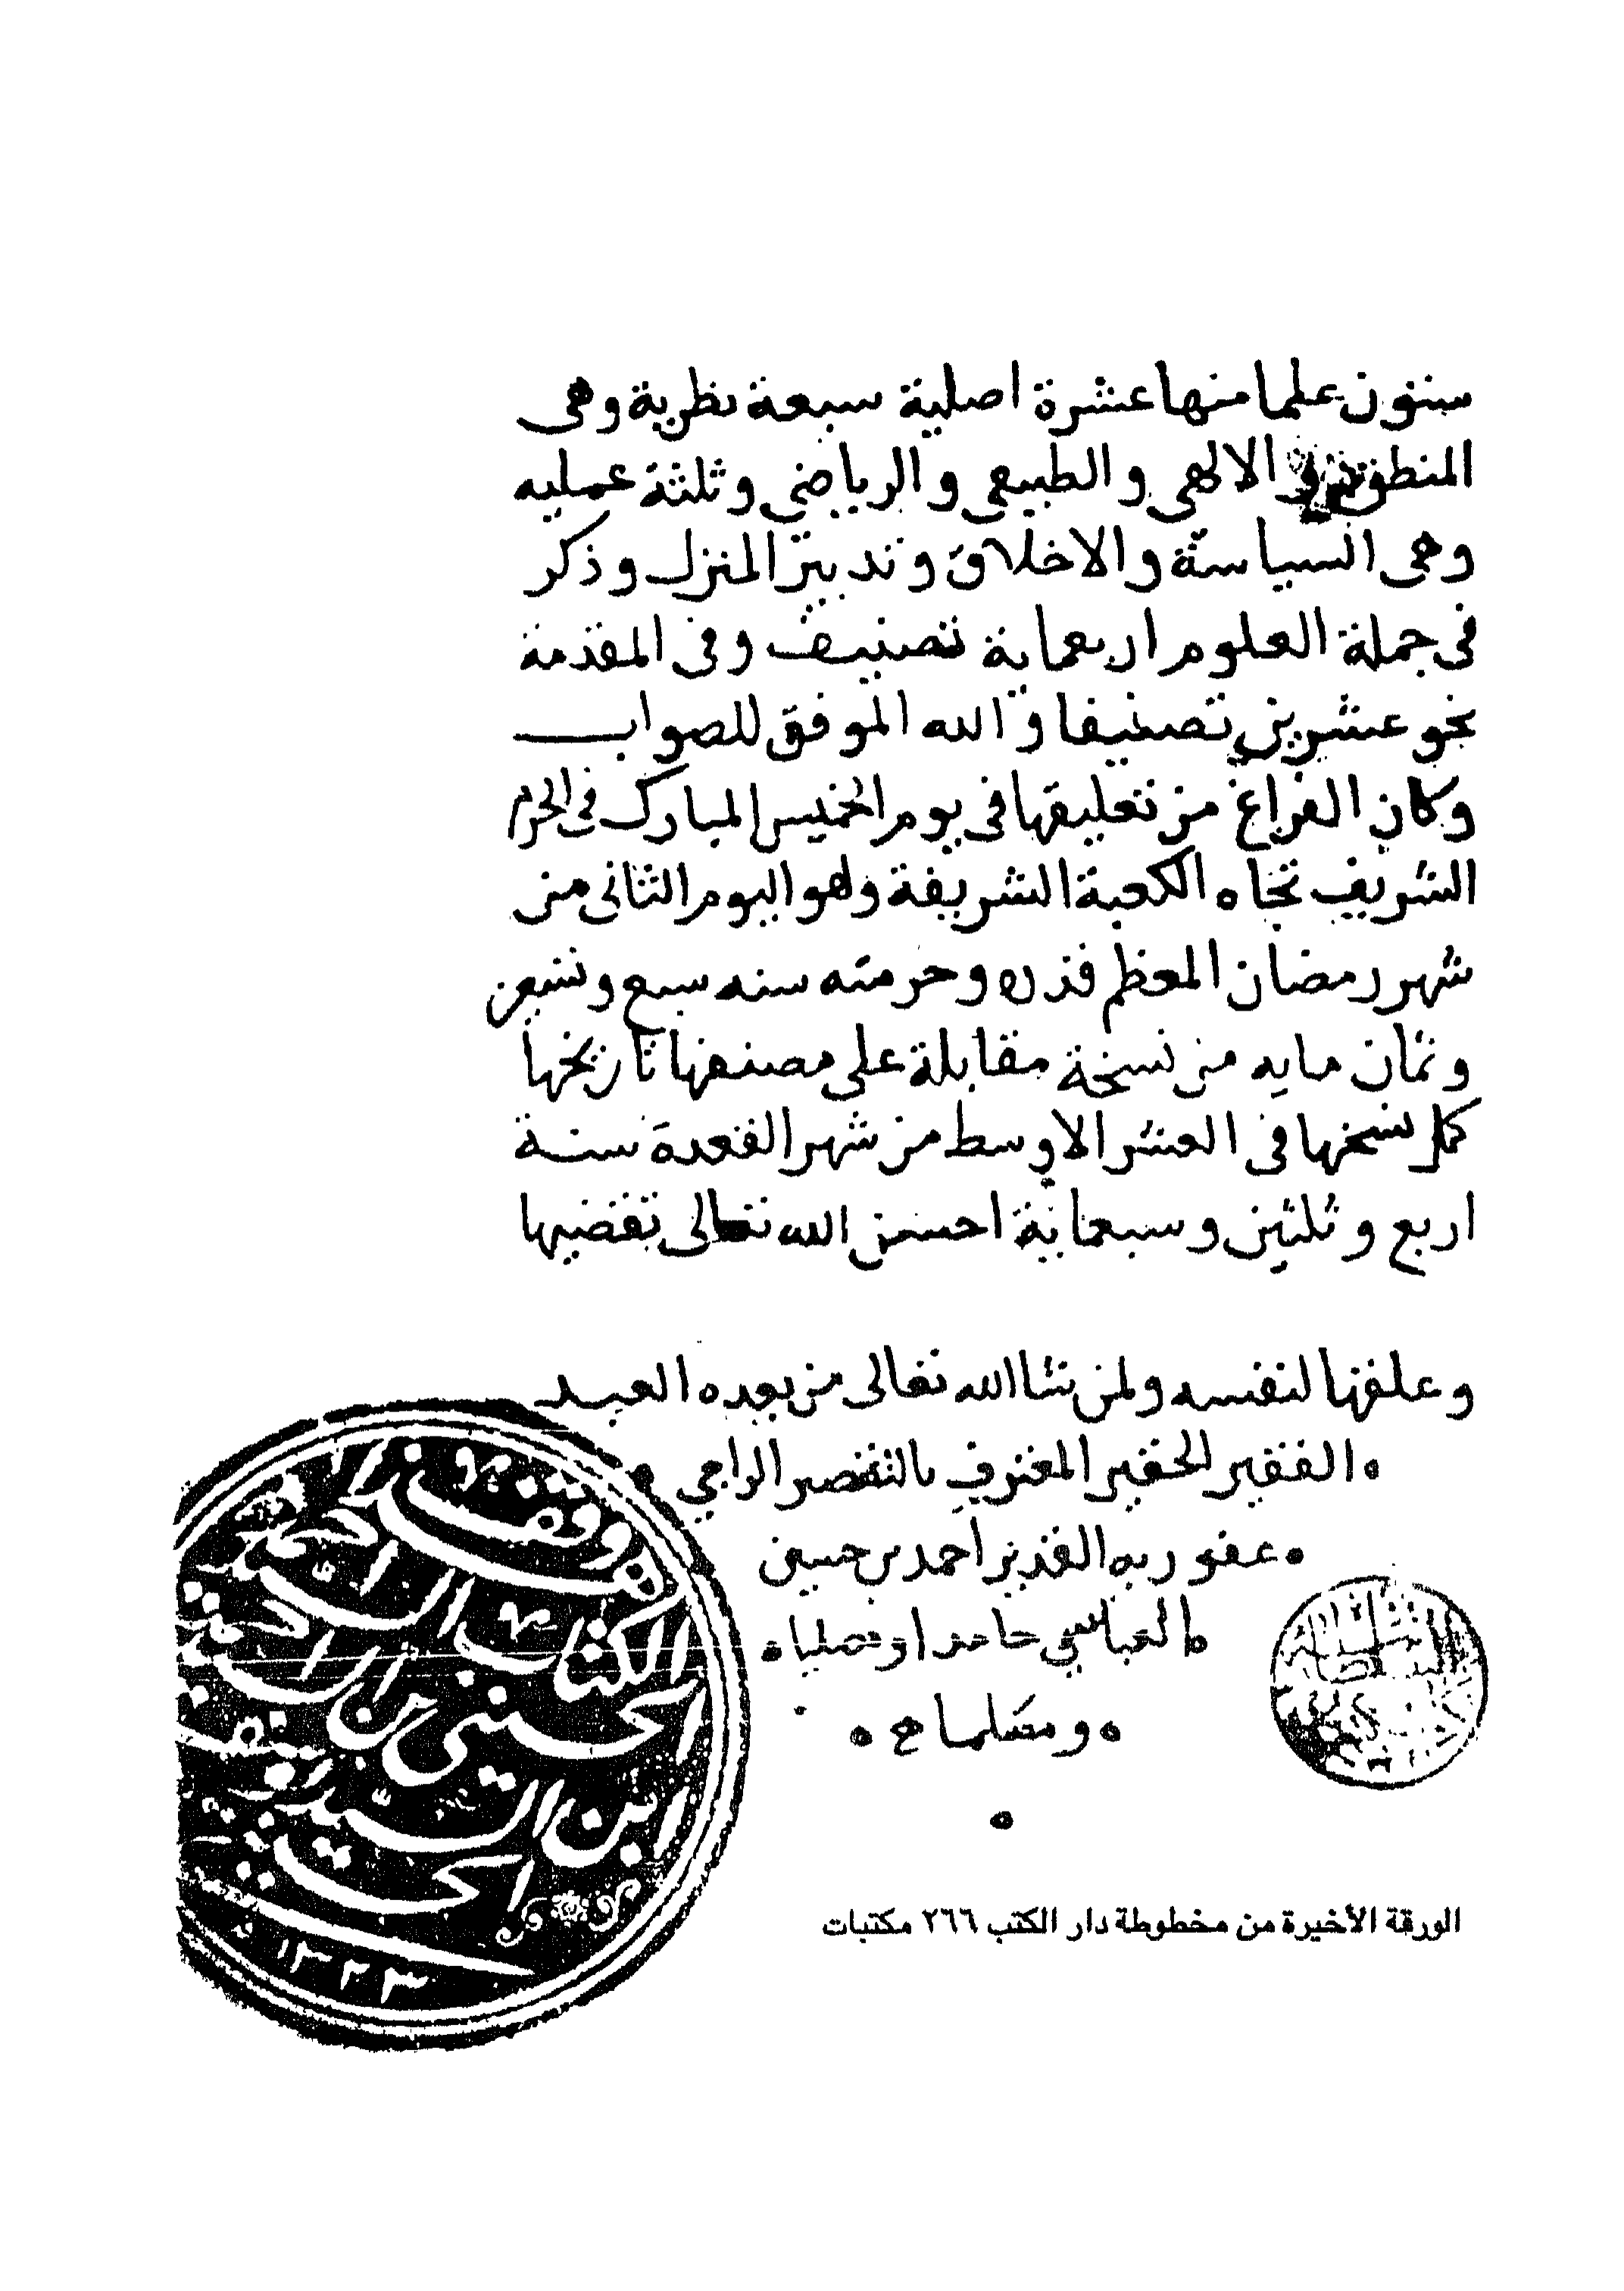 ستون علما منها عشرة اصلية سبعة نظرية وهى
المنطق والالهى والطبيعى والرياضى وثلثة عمليه
وهى السياسة والاخلاق وتدبير المنزل وذكر
فى جملة العلوم اربعماية تصنيف وفى المقدمة
نحو عشرين تصنيفا والله الموفق للصواب
وكان الفراغ من تعليقها فى يوم الخميس المبارك فى الحرم
الشريف تجاه الكعبة الشريفة وهو اليوم الثانى من
شهر رمضان المعظم قدره وحرمته سنه سبع وتسعين
وثمان مايه من نسخة مقابلة على مصنفها تاريخها
كمل نسخها فى العشر الاوسط من شهر القعدة سنة
اربع وثلثين وسبعماية احسن الله تعالى تقضيها
وعلقها لنفسه ولمن شا الله تعالى من بعده العبد
الفقير الحقير المعترف بالتقصير الراجى
عفو ربه القدير احمد بن حسين
العباسي حامدا ومصليا
ومسلما
وقف هذا
الكتاب السيد
الحسيني ابن
ابن السيد
١٣٢٣
الورقة الأخيرة من مخطوطة دار الكتب ٢٦٦ مكتبات